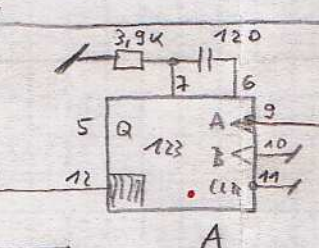 3,9k 120
7 6
5 Q A 9
123 B 10
12 CLR 11
A